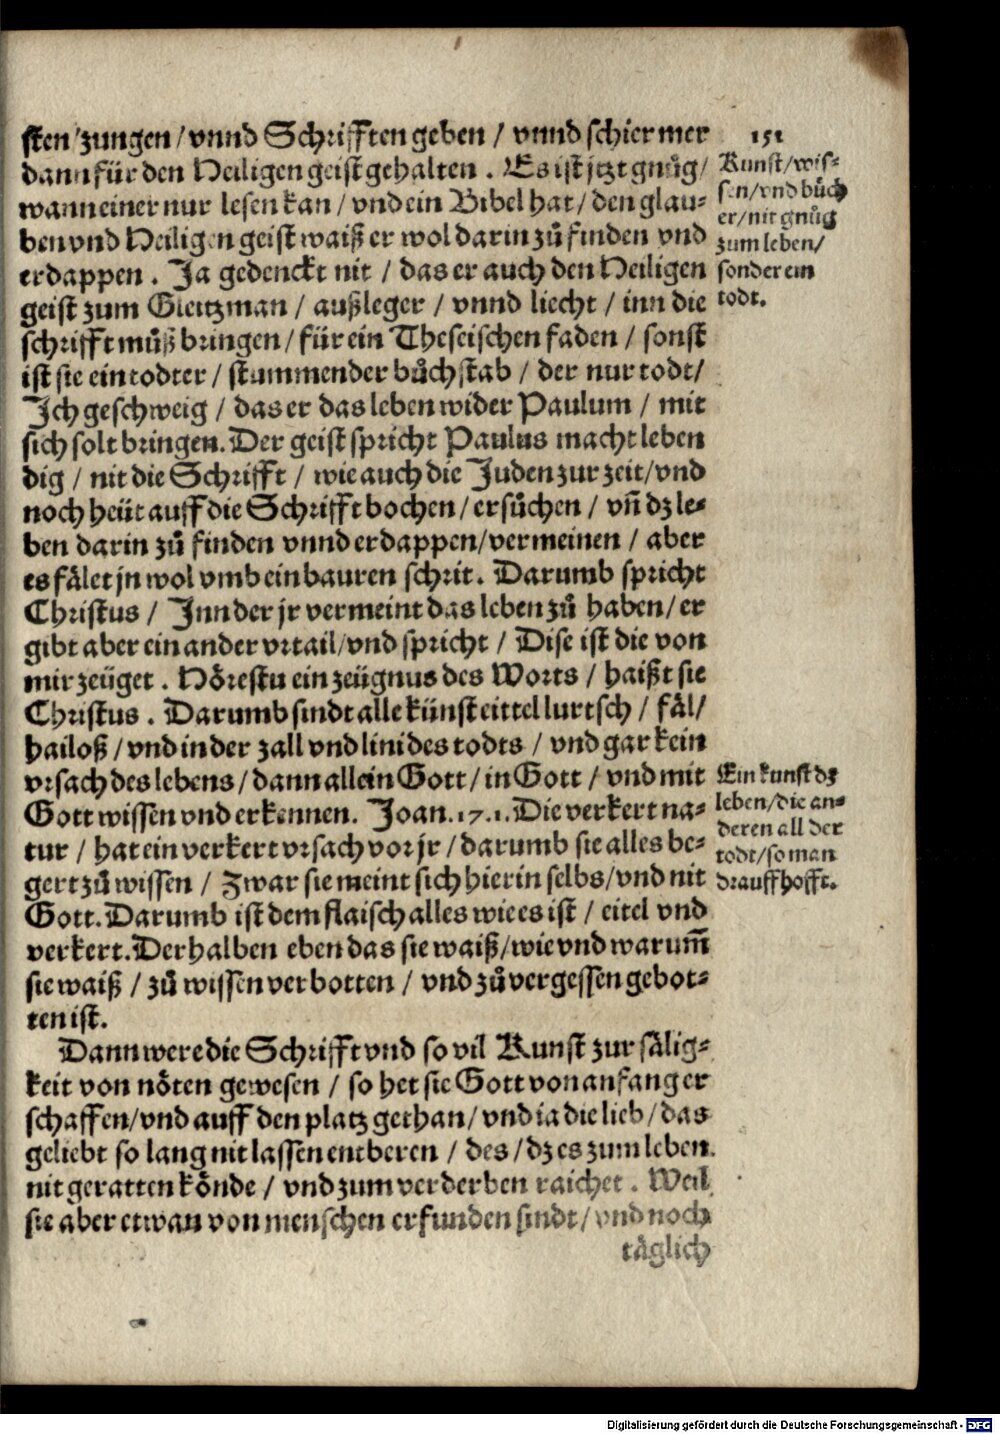 sten zungen / vnnd Schrifften geben / vnnd schier mer
dann für den Heiligen geist gehalten . Es ist jtzt gnůg /
wann einer nur lesen kan / vnd ein Bibel hat / den glau-
ben vnd Heiligen geist waiß er wol darin zů finden vnd
erdappen . Ja gedenckt nit / das er auch den Heiligen
geist zum Gleitzman / außleger / vnnd liecht / inn die
schrifft můß bringen / für ein Theseischen faden / sonst
ist sie ein todter / stummender bůchstab / der nur todt /
Ich geschweig / das er das leben wider Paulum / mit
sich solt bringen. Der geist spricht Paulus macht leben
dig / nit die Schrifft / wie auch die Juden zur zeit / vnd
noch heüt auff die Schrifft bochen / ersůchen / vñ dz le-
ben darin zů finden vnnd erdappen / vermeinen / aber
es fälet jn wol vmb ein bauren schrit . Darumb spricht
Christus / Inn der jr vermeint das leben zů haben / er
gibt aber ein ander vrtail / vnd spricht / Dise ist die von
mir zeüget . Hörestu ein zeügnus des Worts / haißt sie
Christus . Darumb sindt alle künst eittel lurtsch / fäl /
hailoß / vnd in der zall vnd lini des todts / vnd gar kein
vrsach des lebens / dann allein Gott / in Gott / vnd mit
Gott wissen vnd erkennen. Joan. 17. 1. Die verkert na-
tur / hat ein verkert vrsach vor jr / darumb sie alles be-
gert zů wissen / Zwar sie meint sich hierin selbs / vnd nit
Gott. Darumb ist dem flaisch alles wie es ist / eitel vnd
verkert. Derhalben eben das sie waiß / wie vnd warum̃
sie waiß / zů wissen verbotten / vnd zů vergessen gebot-
ten ist.
Dann were die Schrifft vnd so vil Kunst zur sälig-
keit von nöten gewesen / so het sie Gott von anfang er
schaffen / vnd auff den platz gethan / vnd ia die lieb / das
geliebt so lang nit lassen entberen / des / dz es zum leben
nit geratten könde / vnd zum verderben raichet . Weil
sie aber etwan von menschen erfunden sindt / vnd noch
täglich
151
Kunst / wis-
sen / vnd bůch
er / nit gnůg
zum leben /
sonder ein
todt.
Ein kunst dz
leben / die an-
deren all der
todt / so man
drauff hofft.
Digitalisierung gefördert durch die Deutsche Forschungsgemeinschaft - DFG